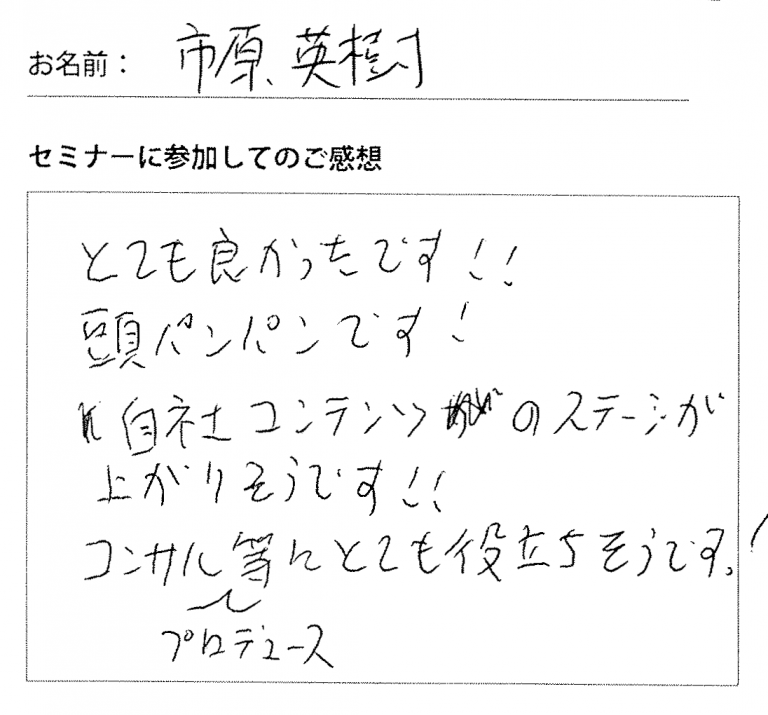 お名前： 市原 英樹
セミナーに参加してのご感想
とても良かったです！！
頭パンパンです！
自社コンテンツのステージが
上がりそうです！！
コンサル等にとても役立ちそうです。！
プロデュース